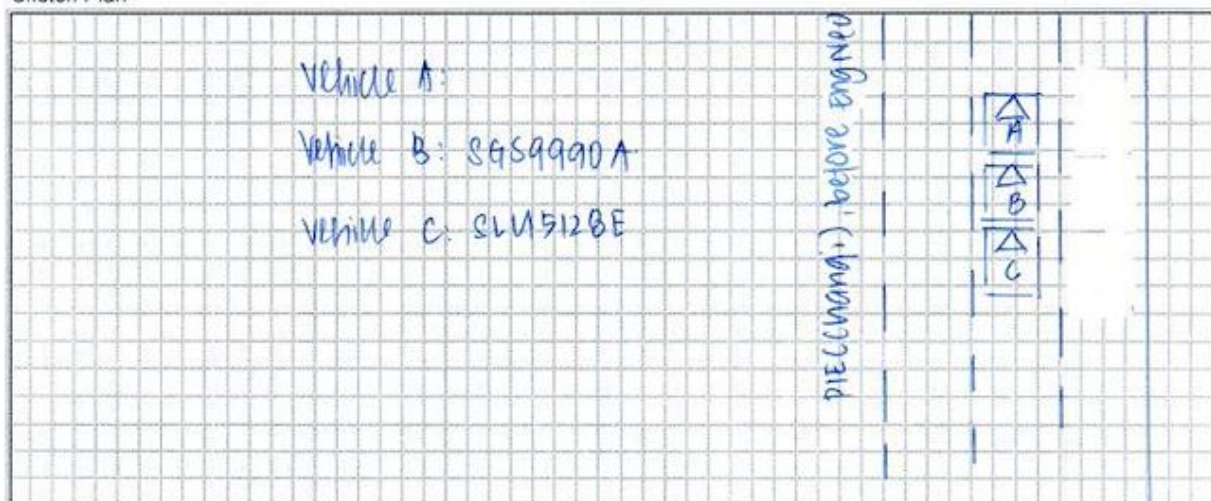 Sketch Plan
Vehicle A:
Vehicle B: SGS9990A
Vehicle C: SLU5128E
PIE(Changi), before eng Neo
A
B
C